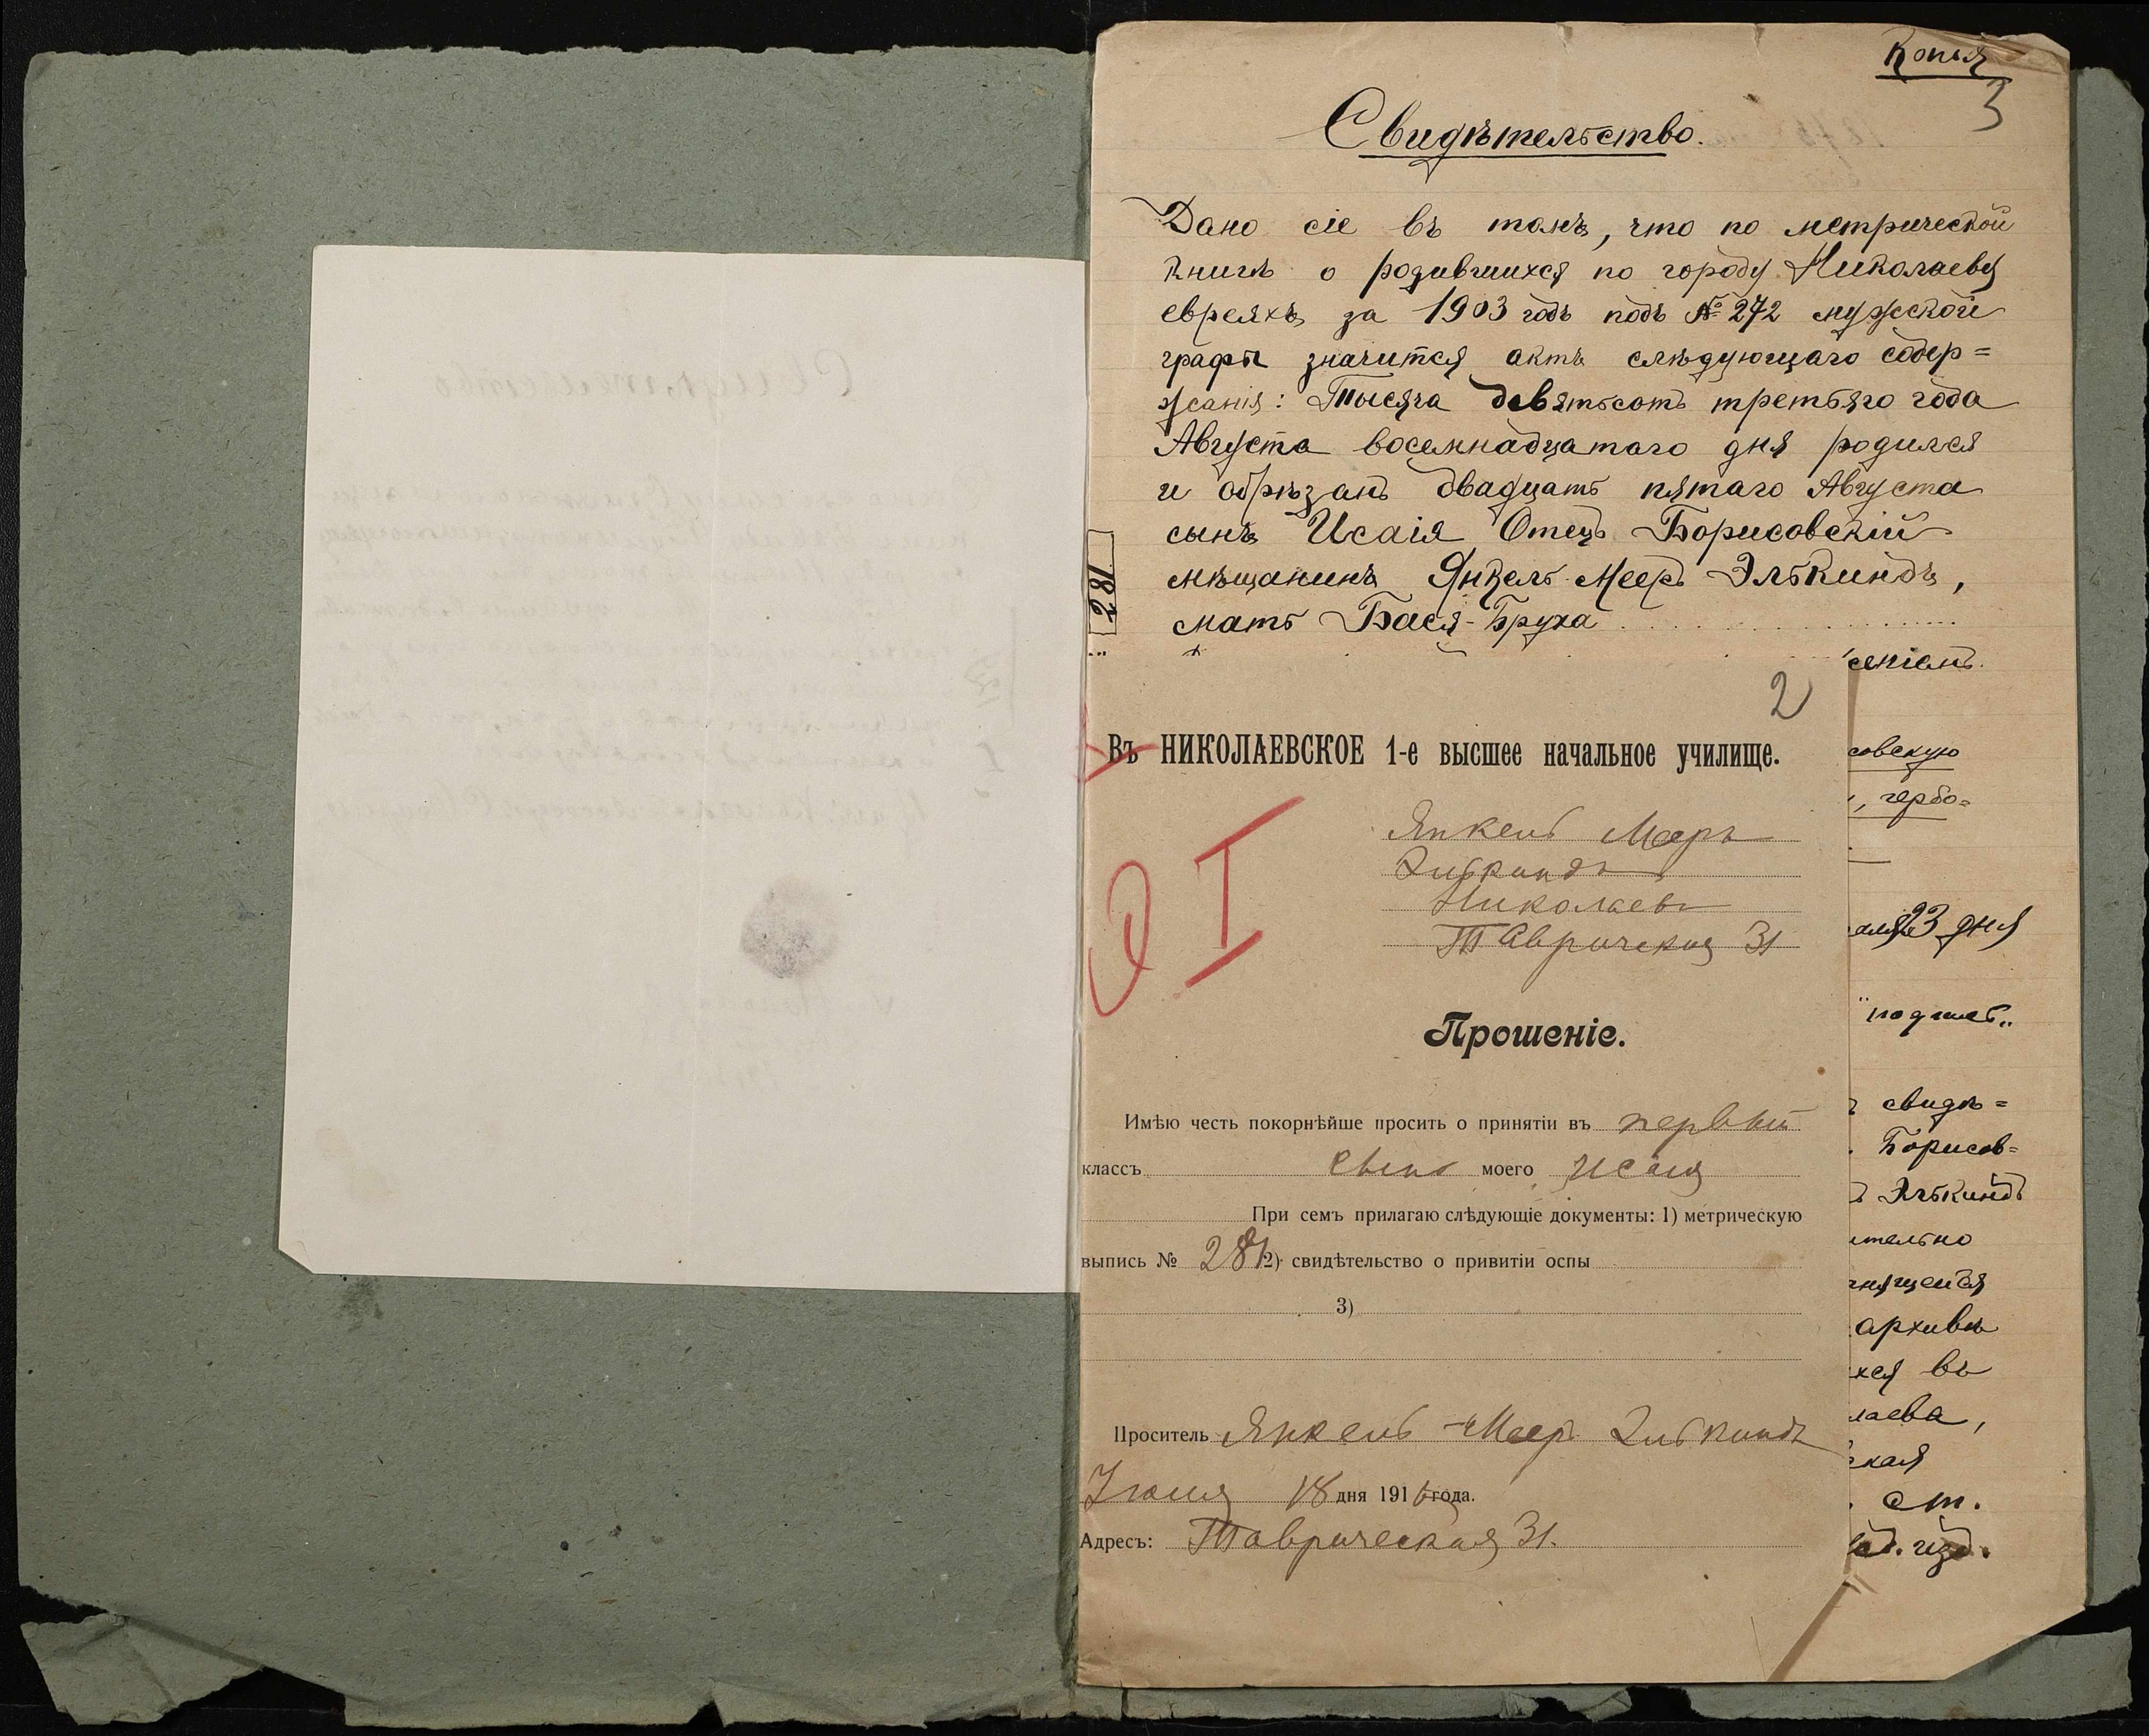 Копія
3
Свидѣтельство.
Дано сіе въ томъ, что по метрической
книгѣ о родившихся по городу Николаеву
евреяхъ за 1903 годъ подъ № 272 мужской
графы значится актъ слѣдующаго содер=
жанія: Тысяча девятьсотъ третьяго года
Августа восемнадцатаго дня родился
и обрѣзанъ двадцать пятаго Августа
сынъ Исаія Отецъ Борисовскій
мѣщанинъ Янкель-Мееръ Элькиндъ,
мать Бася-Бруха
281
2
Въ НИКОЛАЕВСКОЕ 1-е высшее начальное училище.
Янкель Мееръ
Элькиндъ
Николаевъ
Таврическая 31
I
Прошеніе.
Имѣю честь покорнѣйше просить о принятіи въ первый
классъ сына моего Исаія
При семъ прилагаю слѣдующіе документы: 1) метрическую
выпись № 281 2) свидѣтельство о привитіи оспы
3)
Проситель Янкель-Мееръ Элькиндъ
18 дня 191 года.
Адресъ: Таврическая 31.
совскую
, гербо=
23 дня
свидѣ=
Борисов=
Элькиндъ
ительно
нящейся
архивѣ
хся въ
лаева,
ская
ст.
изд.